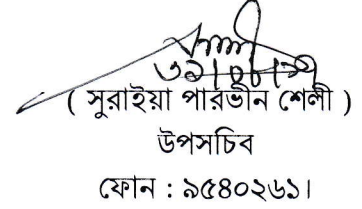 ( সুরাইয়া পারভীন শেলী )
উপসচিব
ফোন : ৯৫৪০২৬১।